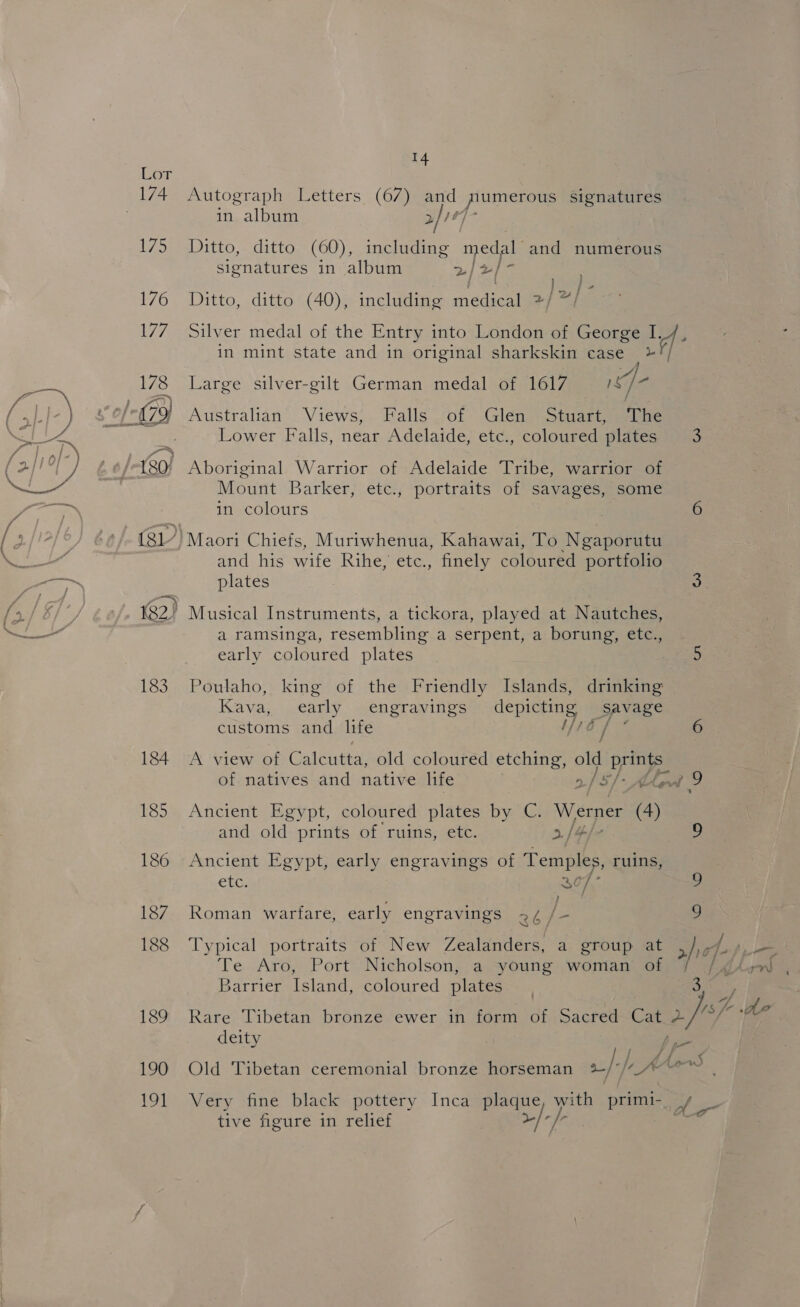 14
LOT
174 Autograph Letters (67) and numerous signatures
in album 2/10/-
175 Ditto, ditto (60), including medal and numerous
signatures in album 2/2/-
176 Ditto, ditto (40), including medical 2/2/-
177 Silver medal of the Entry into London of George I.
in mint state and in original sharkskin case
178 Large silver-gilt German medal of 1617 15/-
179 Australian Views, Falls of Glen Stuart, The
Lower Falls, near Adelaide, etc., coloured plates 3
(2/10/-) 180 Aboriginal Warrior of Adelaide Tribe, warrior of
Mount Barker, etc., portraits of savages, some
in colours 6
181 Maori Chiefs, Muriwhenua, Kahawai, To Ngaporutu
and his wife Rihe, etc., finely coloured portfolio
plates 3
182 Musical Instruments, a tickora, played at Nautches,
a ramsinga, resembling a serpent, a borung, etc.,
early coloured plates 5
183 Poulaho, king of the Friendly Islands, drinking
Kava, early engravings depicting savage
customs and life 6
184 A view of Calcutta, old coloured etching, old prints
of natives and native life 2/5/- 9
185 Ancient Egypt, coloured plates by C. Werner (4)
and old prints of ruins, etc. 2/4/- 9
186 Ancient Egypt, early engravings of Temples, ruins,
etc. 30/- 9
187 Roman warfare, early engravings 26/- 9
188 Typical portraits of New Zealanders, a group at
Te Aro, Port Nicholson, a young woman of
Barrier Island, coloured plates 3
189 Rare Tibetan bronze ewer in form of Sacred Cat
deity
190 Old Tibetan ceremonial bronze horseman 2/-/-
191 Very fine black pottery Inca plaque, with primi-
tive figure in relief 2/-/-